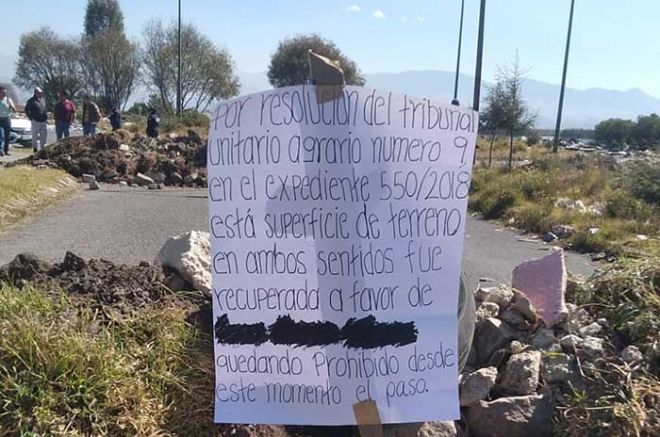 Por resolución del tribunal
unitario agrario numero 9
en el expediente 550/2018
está superficie de terreno
en ambos sentidos fue
recuperada a favor de
quedando Prohibido desde
este momento el paso.